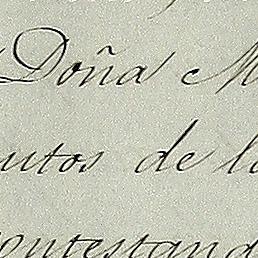 Doña M
utos de l
ontestand